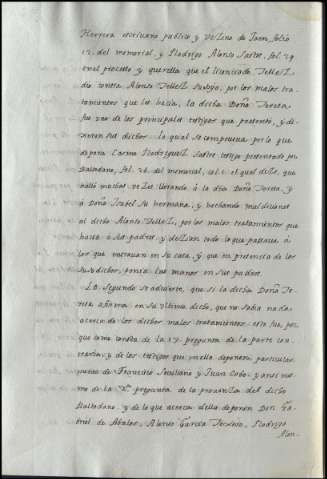 Herrera escriuano publico y Vezino de Jaen, folio
12. del memorial, y Rodrigo Alonso Sastre, fol. 29
en el precesso y querella que el licenciado Tellez
dio contra Alonso Tellez su hijo, por los malos tra-
tamientos que les hazia, la dicha Doña Teresa
fue vno de los principales testigos que presentó, y di-
xeron sus dichos. la qual se comprueua por lo que
depone Lazaro Rodriguez Sastre testigo presentado por
Baltodano, fol. 26. del memorial, en el qual dize, que
halló muchas vezes llorando à la dha Doña Teresa, y
à Doña Isabel su hermana, y hechando maldiciones
al dicho Alonso Tellez, por los malos tratamientos que
hazia à sus padres, y dezian todo lo que passaua à
los que entrauan en su casa, y que en presencia de los
susodichos, ponia las manos en sus padres.
Lo segundo se aduierte, que si la dicha Doña Te-
resa afirma en su vltimo dicho, que no sabia nada
acerca de los dichos malos tratamientos. esto fue, por
que como la 17. pregunta de la parte con-
traria, y de los testigos que en ella deponen particular
mente de Francisco Seuillano y Juan Cobo. y anssi mes-
mo de la pregunta de la prouanza del dicho
Baltodano. y de lo que acerca della deponen Don Ga-
briel de Aualos, Alonso Garcia Rodrigo
Alon-